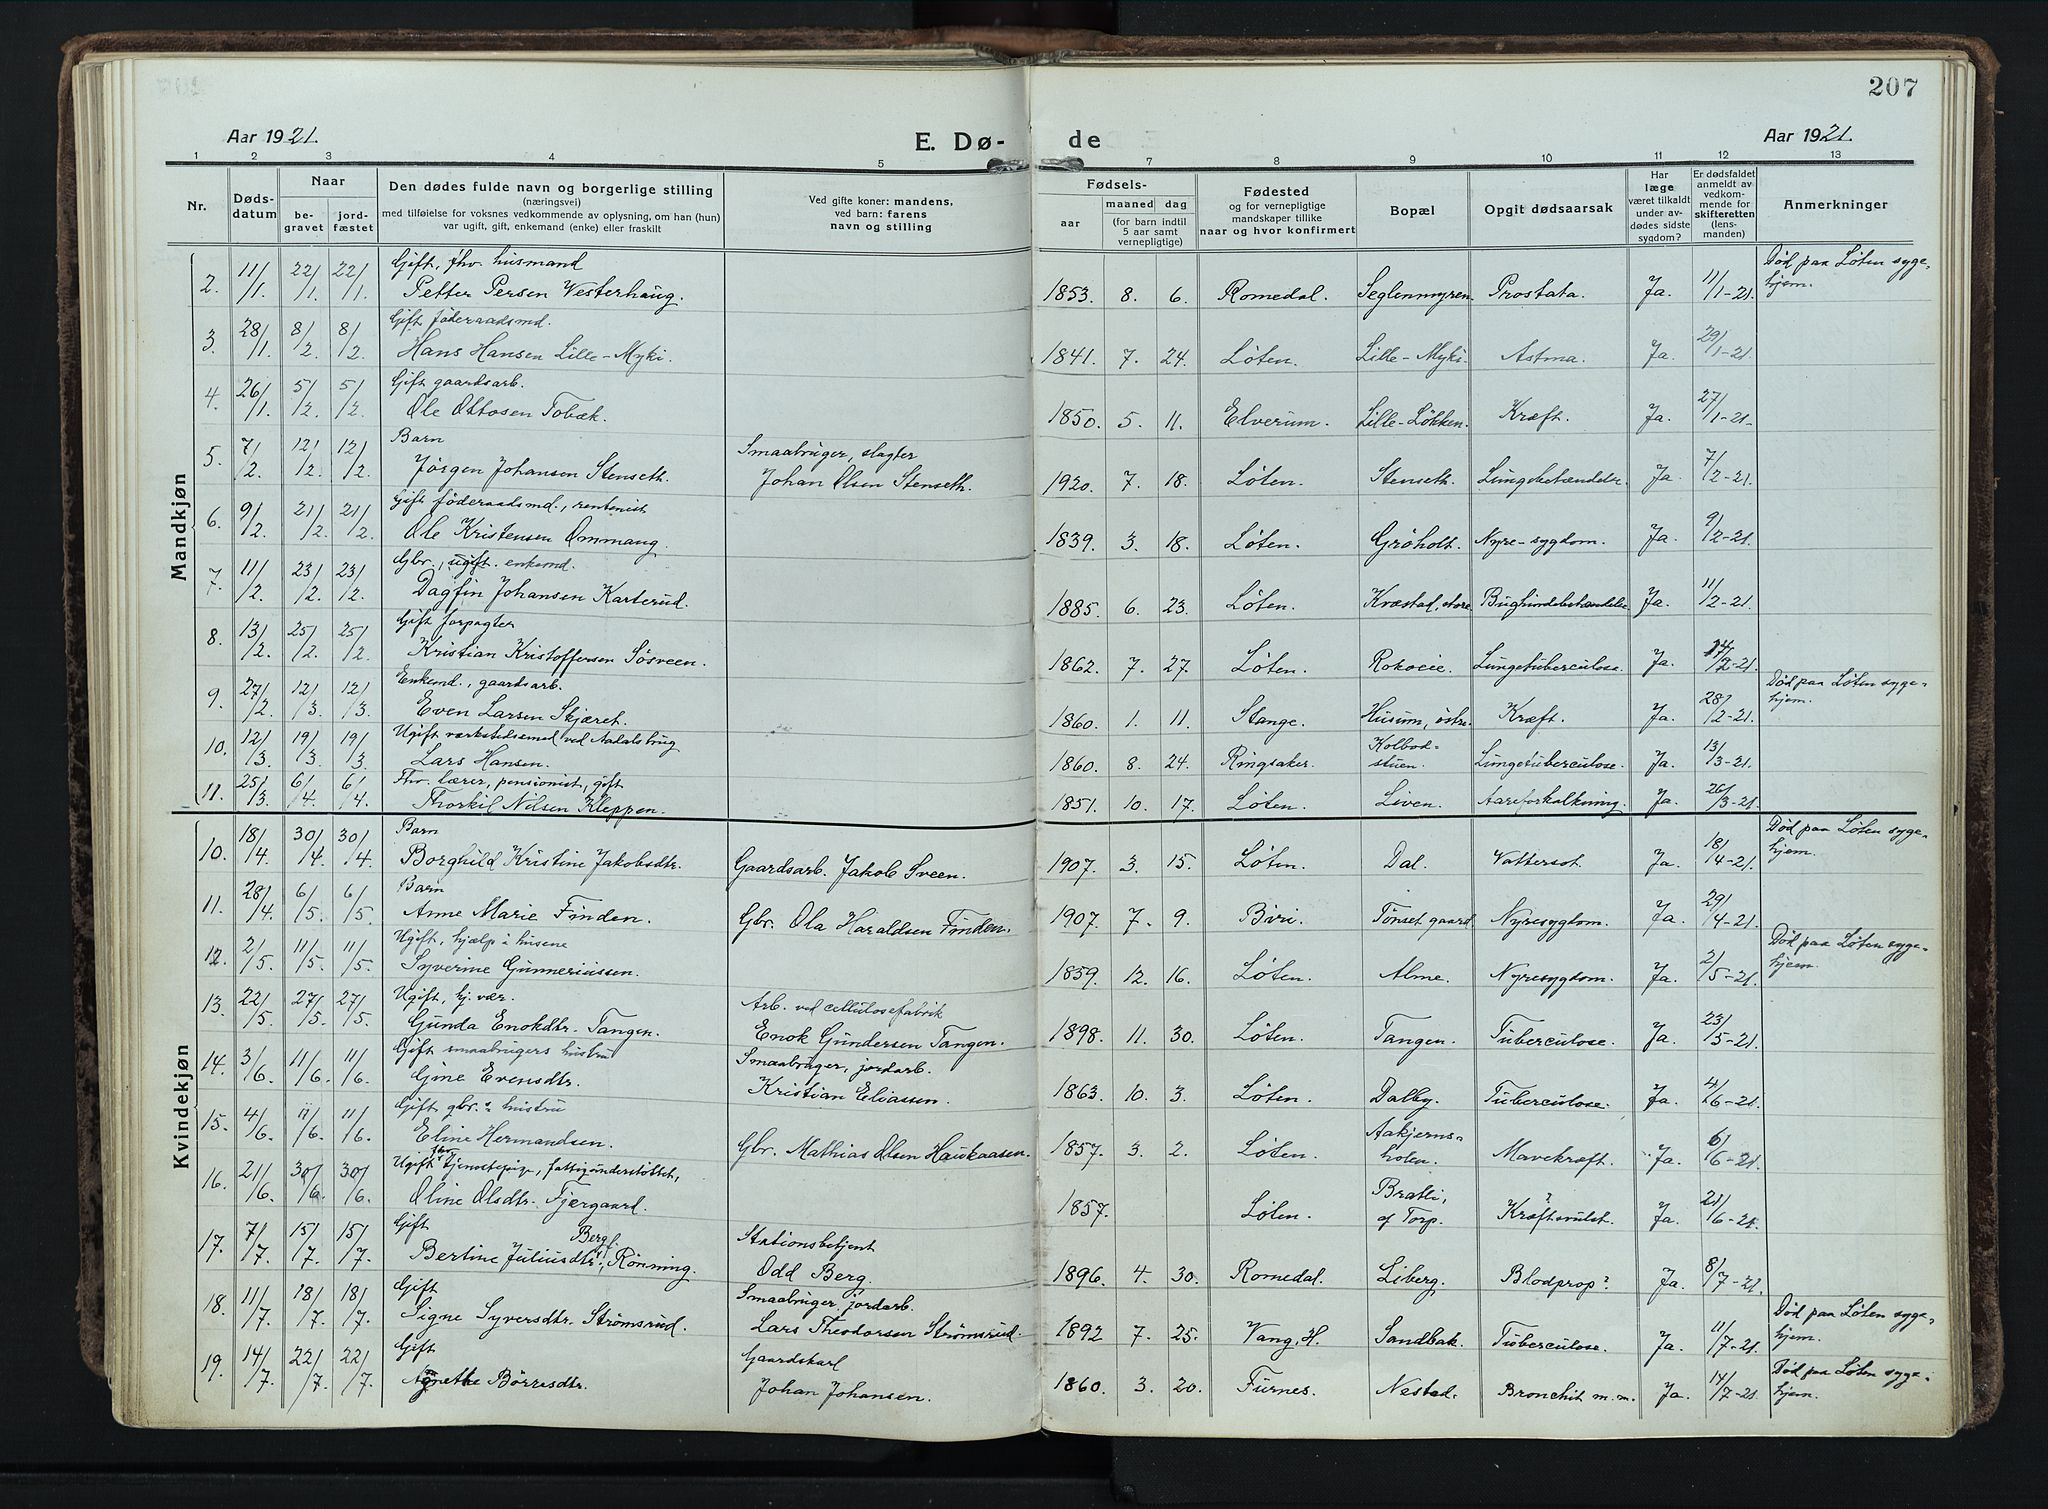 207
Aar 1921.
E. Dø- de
Aar 1921.
1 2 3 4 5 7 8 9 10 11 12 13
Nr.
Døds-
datum
Naar
be-
gravet
jord-
fæstet
Den dødes fulde navn og borgerlige stilling
(næringsvei)
med tilføielse for voksnes vedkommende av oplysning, om han (hun)
var ugift, gift, enkemand (enke) eller fraskilt
Ved gifte koner: mandens,
ved barn: farens
navn og stilling
Fødsels-
aar
maaned dag
(for barn indtil
5 aar samt
vernepligtige)
Fødested
og for vernepligtige
mandskaper tillike
naar og hvor konfirmert
Bopæl
Opgit dødsaarsak
Har
læge
været tilkaldt
under av-
dødes sidste
sygdom?
Er dødsfaldet
anmeldt av
vedkom-
mende for
skifteretten
(lens-
manden)
Anmerkninger
Mandkjøn
Gift, fhv. husmand
Død paa Løten syge-
2. 11/1 22/1. 22/1. Petter Persen Westerhaug. 1853. 8. 6. Romedal. Seglenmyren. Prostata. Ja. 11/1-21. hjem.
Gift føderaadsmd.
3. 28/1 8/2. 8/2. Hans Hansen Lille-Myki. 1841. 7. 24. Løten. Lille-Myki. Astma. Ja. 29/1-21.
Gift gaardsarb.
4. 26/1. 5/2. 5/2. Ole Ottosen Tobæk. 1850. 5. 11. Elverum. Lille-Løkken. Kræft. Ja. 27/1-21.
Barn Smaabruger, slagter
5. 7/2 12/2. 12/2. Jørgen Johansen Stenseth. Johan Olsen Stenseth. 1920. 7. 18. Løten. Stenseth. Lungebetændelse. Ja. 7/2-21.
Gift føderaadsmd., rentenist
6. 9/2. 21/2. 21/2. Ole Kristensen Ommang. 1839. 3. 18. Løten. Grøholt. Nyre-sygdom. Ja. 9/2-21.
Gbr., ugift. enkemd.
7. 11/2 23/2. 23/2. Dagfin Johansen Karterud. 1885. 6. 23. Løten. Kræstad, store Bughindebetændelse Ja. 11/2-21.
Gift forpagter
8. 13/2. 25/2. 25/2. Kristian Kristoffersen Søsveen. 1862. 7. 27. Løten. Lungetuberculose. Ja. 14/2-21.
Enkemd., gaardsarb. Død paa Løten syge-
9. 27/2 12/3. 12/3. Even Larsen Skjæret. 1860. 1. 11. Stange. Husum, østre Kræft. Ja. 28/2-21. hjem.
Ugift værkstedssmed ved Aadalsbrug Kolbod-
10. 12/3. 19/3. 19/3. Lars Hansen. 1860. 8. 24. Ringsaker. stuen. Lungetuberculose. Ja. 13/3-21.
Fhv. lærer, pensionist, gift
11. 25/3. 6/4. 6/4. Thorkil Nilsen Kleppen. 1851. 10. 17. Løten. Liven. Aareforkalkning. Ja. 26/3-21.
Kvindekjøn
Barn Død paa Løten syge-
10. 18/4 30/4. 30/4. Borghild Kristine Jakobsdtr. Gaardsarb. Jakob Sveen. 1907. 3. 15. Løten. Dal. Vattersot. Ja. 18/4-21. hjem.
Barn
11. 28/4. 6/5. 6/5. Anne Marie Finden. Gbr. Ola Haraldsen Finden. 1907. 7. 9. Biri. Tønset gaard. Nyresygdom. Ja. 29/4-21.
Ugift, hjælp i husene Død paa Løten syge-
12. 2/5. 11/5. 11/5. Syverine Gunneriussen. 1859. 12. 16. Løten. Alme. Nyresygdom. Ja. 2/5-21. hjem.
Ugift, hj. vær. Arb. ved cellulosefabrik
13. 22/5. 27/5. 27/5. Gunda Enoksdtr. Tangen. Enok Gundersen Tangen. 1898. 11. 30. Løten. Tangen. Tuberculose. Ja. 23/5-21.
Gift smaabrugers hustru Smaabruger, jordarb.
14. 3/6. 11/6. 11/6. Gine Evensdtr. Kristian Eliassen. 1863. 10. 3. Løten. Dalby. Tuberculose. Ja. 4/6-21.
Gift gbr.s hustru Aakjerns-
15. 4/6. 11/6. 11/6. Eline Hermandsen. Gbr. Mathias Olsen Haukaasen. 1857. 3. 2. Løten. holen. Mavekræft. Ja. 6/6-21.
Ugift fhv. Tjenestepige, fattigunderstøttet, Bratli,
16. 21/6. 30/6. 30/6. Oline Olsdtr. Fjergaard. 1857. Løten. af Torp. Kræftsvulst.? Ja. 21/6-21.
Gift Berg f. Stationsbetjent
17. 7/7. 15/7. 15/7. Bertine Juliusdtr., Rønning. Odd Berg. 1896. 4. 30. Romedal. Liberg. Blodprop? Ja. 8/7-21.
Gift Smaabruger, jordarb. Død paa Løten syge-
18. 11/7. 18/7. 18/7. Signe Syversdtr. Strømsrud. Lars Theodorsen Strømsrud. 1892 7. 25. Vang, H. Sandbak. Tuberculose. Ja. 11/7-21. hjem.
Gift Gaardskarl Død paa Løten syge-
19. 14/7. 22/7. 22/7. Agnethe Børresdtr. Johan Johansen. 1860. 3. 20. Furnes. Nestad. Bronchit m.m. Ja. 14/7-21. hjem.